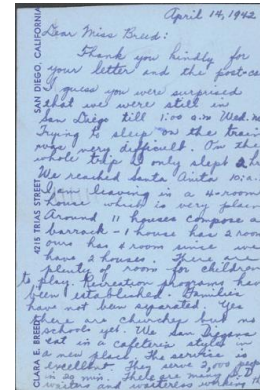 April 14, 1942
Dear Miss Breed:
Thank you kindly for
your letter and the post-ca
I guess you were surprised
that we were still in
San Diego till 1:00 a.m. Wed. m
Trying to sleep on the train
was very difficult. On the
whole trip I only slept 2 h
We reached Santa Anita 10: a.
I am leaving in a 4-room
house which is very plain
Around 11 houses compose a
barrack - 1 house has 2 room
ours has 4 room since we
have 2 houses. There are
plenty of room for children
to play. Recreation programs have
been established. Families
have not been separated. Yes
there are churches but no
schools yet. We San Diegans
eat in a cafeteria style in
a new place. The service is
excellent. They serve 3,000 people
in 20 min. There are many
waiters and waitresses working
CLARA E. BREED
4215 TRIAS STREET
SAN DIEGO, CALIFORNIA